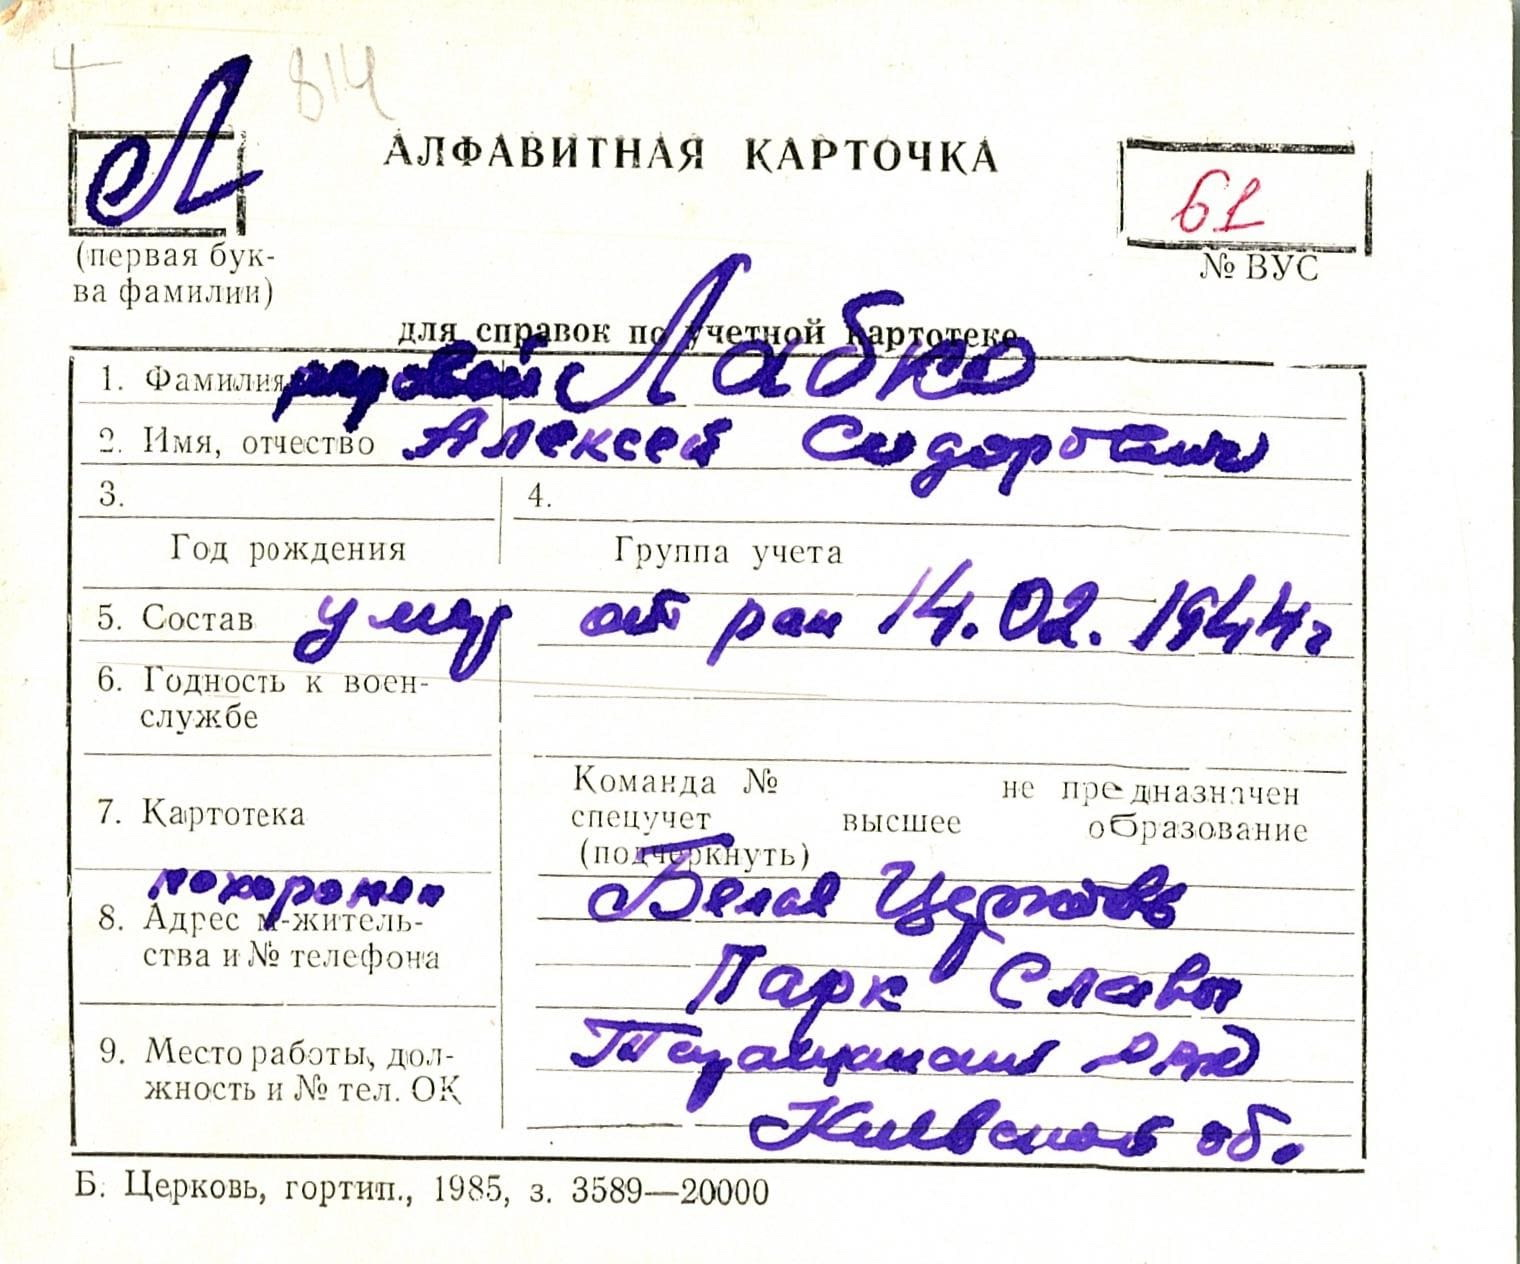 814
Л
АЛФАВИТНАЯ КАРТОЧКА
61
(первая бук-
ва фамилии)
№ ВУС
для справок по учетной картотеке
1. Фамилия рядовой Лабко
2. Имя, отчество Алексей Сидорович
3. 4.
Год рождения Группа учета
5. Состав умер от ран 14.02.1944г
6. Годность к воен-
службе
Команда № не предназначен
7. Картотека
спецучет высшее образование
(подчеркнуть)
похоронен
Белая Церковь
8. Адрес м-житель-
ства и № телефона
Парк Славы
9. Место работы, дол-
жность и № тел. ОК
Киевской об.
Б. Церковь, гортип., 1985, з. 3589—20000